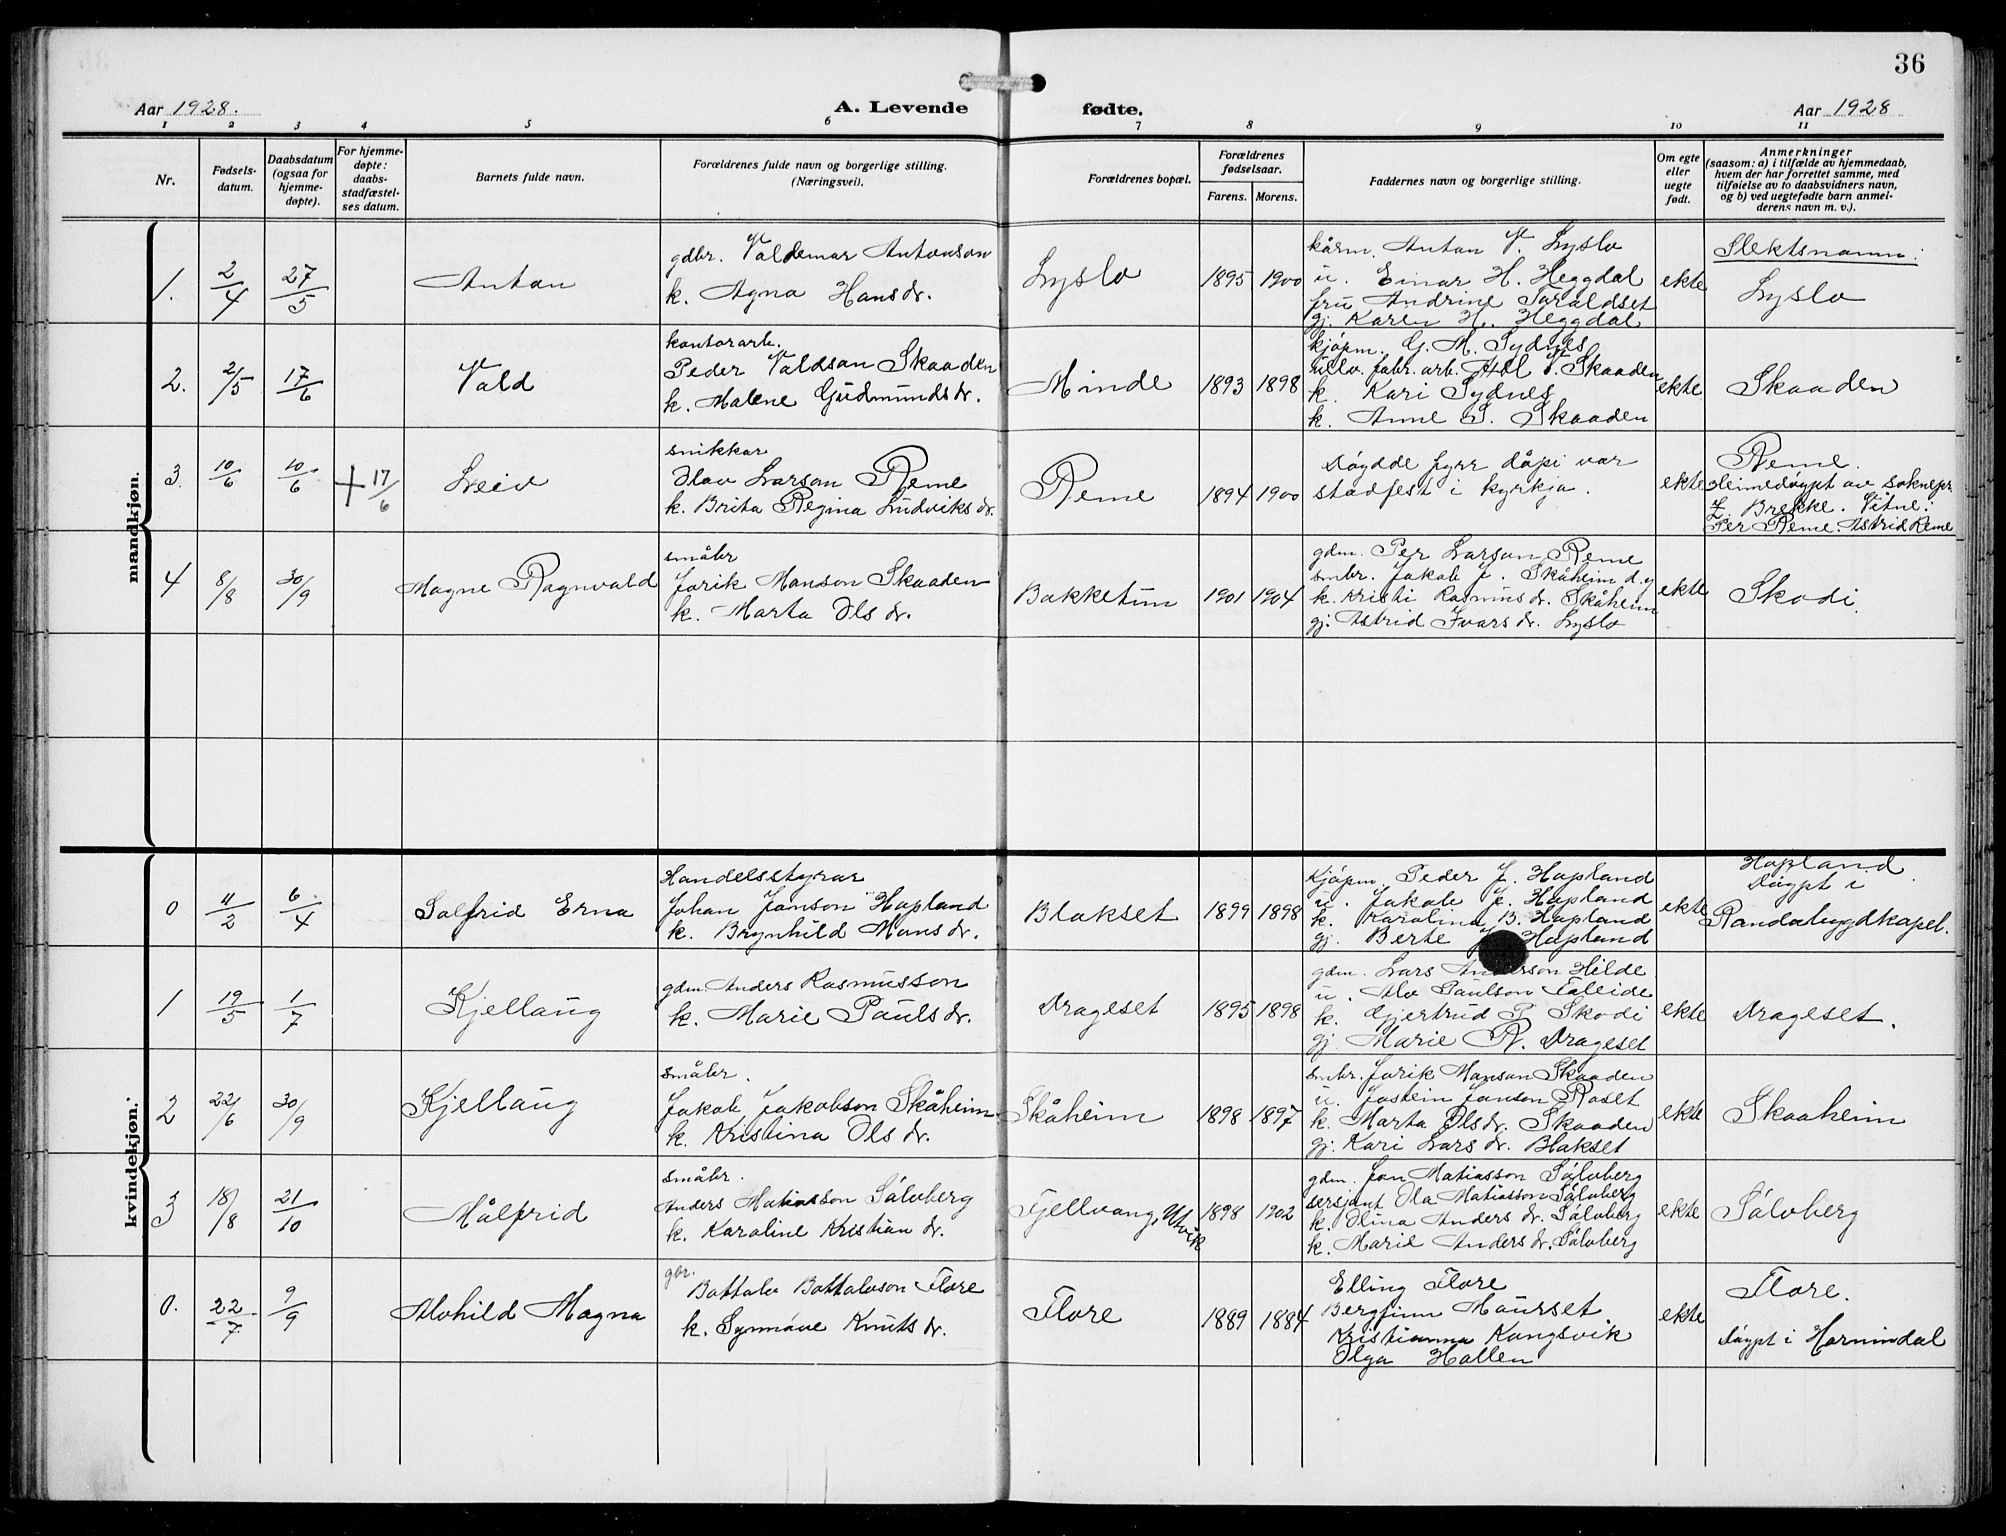 36
Aar 1928.
A. Levende fødte.
Aar 1928
1 2 3 4 5 6 7 8 9 10 11
Nr.
Fødsels-
datum.
Daabsdatum
(ogsaa for
hjemme-
døpte).
For hjemme-
døpte:
daabs-
stadfæstel-
ses datum.
Barnets fulde navn.
Forældrenes fulde navn og borgerlige stilling.
(Næringsvei).
Forældrenes bopæl.
Forældrenes
fødselsaar.
Farens. Morens.
Faddernes navn og borgerlige stilling.
Om egte
eller
uegte
født.
Anmerkninger
(saasom: a) i tilfælde av hjemmedaab,
hvem der har forrettet samme, med
tilføielse av to daabsvidners navn,
og b) ved uegtefødte barn anmel-
derens navn m. v.).
mandkjøn.
1. 2/4 27/5 Anton
gdbr. Valdemar Antonson
k. Agna Hansdr.
Lyslo 1895 1900
kårm. Anton V. Lyslo
u. Einar H. Heggdal
fru Andrine Taraldset
gj. Karen H. Heggdal
ekte
Slektsnamn:
Lyslo
2. 2/5 17/6 Vald
kontorarb.
Peder Valdson Skaaden
k. Malene Gudmundsdr.
Minde 1893 1898
kjøpm. G. M. Sydnes
ullv. fabr. arb. V. Skaaden
k. Kari Sydnes
k. Anne S. Skaaden
ekte
Skaaden
3. 10/6 10/6 + 17/6 Leiv
snikkar
Olav Larson Reme
k. Brita Regina Ludviksdr.
Reme 1894 1900
Døydde fyrr dåpi var
stadfest i kyrkja.
ekte
Reme.
Heimedøypt av soknepr.
Brekke. Vitne:
Per Reme. Astrid Reme
4 8/8 30/9 Magne Ragnvald
småbr
Jørik Monson Skaaden
k. Marta Olsdr.
Bakketun 1901 1904
gdm. Per Larson Reme
smbr. Jakob J. Skåheim d.y
k. Kristi Rasmusdr. Skåheim
gj. Astrid Ivarsdr. Lyslo
ekte
Skodi.
kvindekjøn.
0 11/2 6/4 Solfrid Erna
Handelsstyrar
Johan Janson Hopland
k. Brynhild Monsdr.
Blakset 1899 1898
Kjøpm. Peder J. Hopland
u. Jakob J. Hopland
k. Karolina B. Hopland
gj. Berte Hopland
ekte
Hopland
Døypt i
Randabygdkapel.
1 19/5 1/7 Kjellaug
gdm. Anders Rasmusson
k. Marie Paulsdr.
Drageset 1895 1898
gdm. Lars Anderson Hilde
u. Alv Paulson Faleide
k. Gjertrud P Skodi
gj. Marie R. Drageset
ekte
Drageset.
2 22/6 30/9 Kjellaug
småbr.
Jakob Jakobson Skåheim
k. Kristina Olsdr.
Skåheim 1898 1897
smbr. Jørik Monson Skaaden
u. Jostein Janson Roset
k. Marta Olsdr. Skaaden
gj. Kari Larsdr. Blakset
ekte
Skaaheim
3 18/8 21/10 Målfrid
småbr.
Anders Matiasson Sølvberg
k. Karoline Kristiandr.
Fjellvang, Utvik 1898 1902
gdm. Jon Matiasson Sølvberg
sersjant Ola Matiasson Sølvberg
k. Olina Andersdr. Sølvberg
k. Marie Andersdr. Sølvberg
ekte
Sølvberg
0. 22/7 9/9 Alvhild Magna
gbr.
Bottolv Bottolvson Flore
k. Synnøve Knutsdr.
Flore 1889 1884
Elling Flore
Bergfinn Maurset
Kristianna Kongsvik
Olga Hallen
ekte
Flore.
Døypt i Hornindal